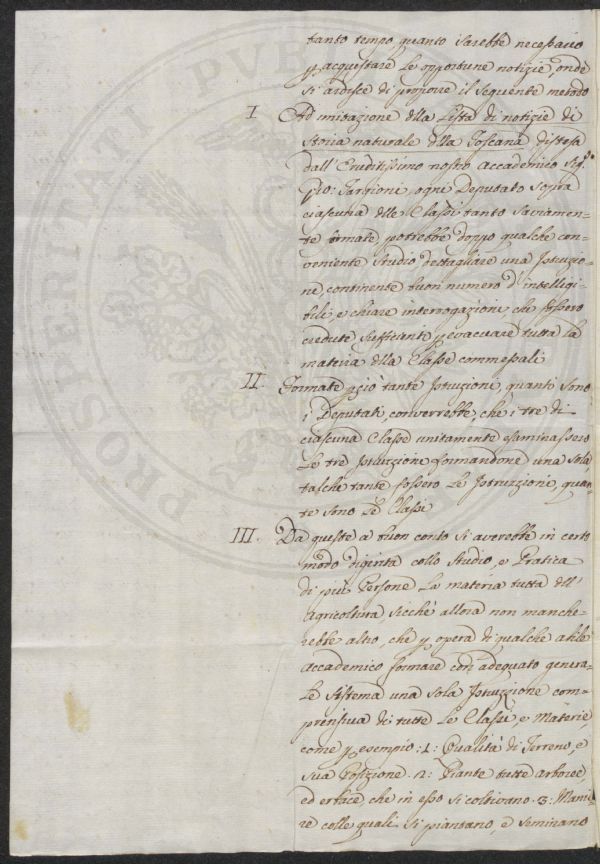 tanto tempo quanto sarebbe necessario
p acquistare le opportune notizie, onde
si ardisce di proporre il seguente metodo
I. Ad imitazione dlla Lista di notizie di
Storia naturale dlla Toscana, distesa
dall' Eruditissimo nostro Accademico Sig.e
Gio: Targioni, ogni Deputato sopra
ciascuna dlle Classi tanto saviamen=
te formate, potrebbe doppo qualche con=
veniente studio dettagliare una Istruzio=
ne, continente buon numero d'intelligi=
bili, e chiare interrogazioni, che fossero
credute sufficienti p evacuare tutta la
materia dlla Classe commessali
II. Formate pciò tante Istruzioni, quanti sono
i Deputati, converrebbe, che i tre di
ciascuna Classe unitamente esaminassero
le tre Istruzzione formandone una sola
talche tante fossero le Istruzzioni, quan=
te sono le Classi
III. Da queste a buon conto si averebbe in certo
modo digerita collo studio, e Pratica
di più Persone la materia tutta dll'
Agricoltura sicchè allora non manche=
rebbe altro, che p opera di qualche abile
Accademico formare con adequato genera=
le sistema una sola Istruzzione com=
prensiva di tutte le Classi, e Materie,
come p esempio: 1: Qualità di Terreno, e
sua Posizione. 2: Piante tutte arboree,
ed erbacee, che in esso si coltivano. 3: Manie=
re colle quali si piantano, e seminano
PROSPERITATI PVB